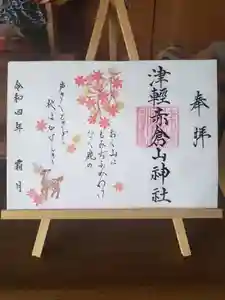 奉拝
津輕赤倉山神社
おく山に
もみぢふみわけ
なく鹿の
声きくときぞ
秋はかなしき
令和四年 霜月